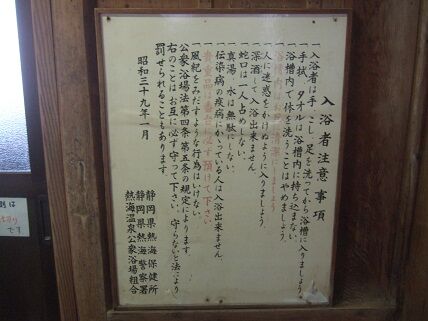 入浴者注意事項
一、入浴者は手、こし、足を洗ってから浴槽に入りましょう
一、手拭、タオルは浴槽内に持ち込まない
一、浴槽内で体を洗うことはやめましょう
一、人に迷惑をかけぬように入りましょう
一、深酒して入浴出来ません
一、蛇口は一人占めしない
一、真湯、水は無駄にしない
一、伝染病の疾病にかかっている人は入浴出来ません
一、貴重品は番台に必ず預けて下さい
一、風紀をみだすような行為はいけない
公衆浴場法第四条第五条の規定によります
右のことはお互に必ず守って下さい、守らないと法により
罰せられることもあります
昭和三十九年一月
静岡県熱海保健所
静岡県熱海警察署
熱海温泉公衆浴場組合
です